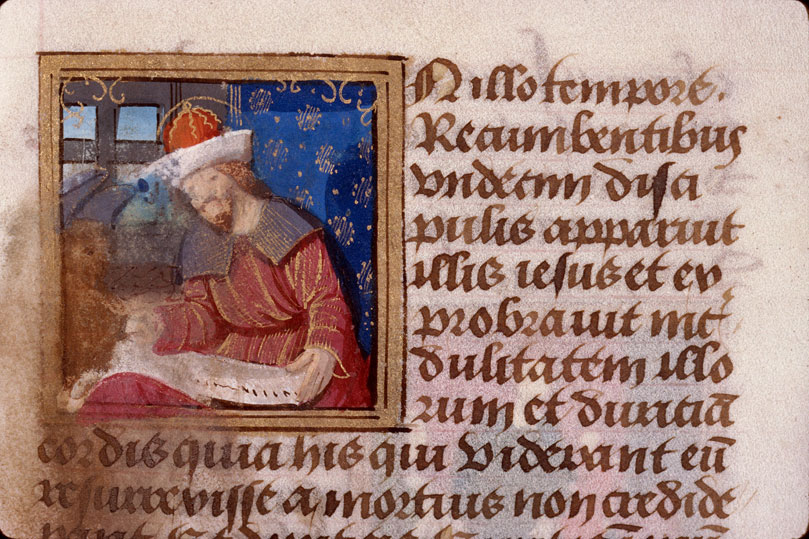 N illo tempore.
Recumbentibus
vndecim disci
pulis apparuit
illis iesus et ex
probrauit incͬ
dulitatem illo
rum et duriciā
cordis quia his qui viderant eū
resurrexisse a mortuis non credide
rant Et